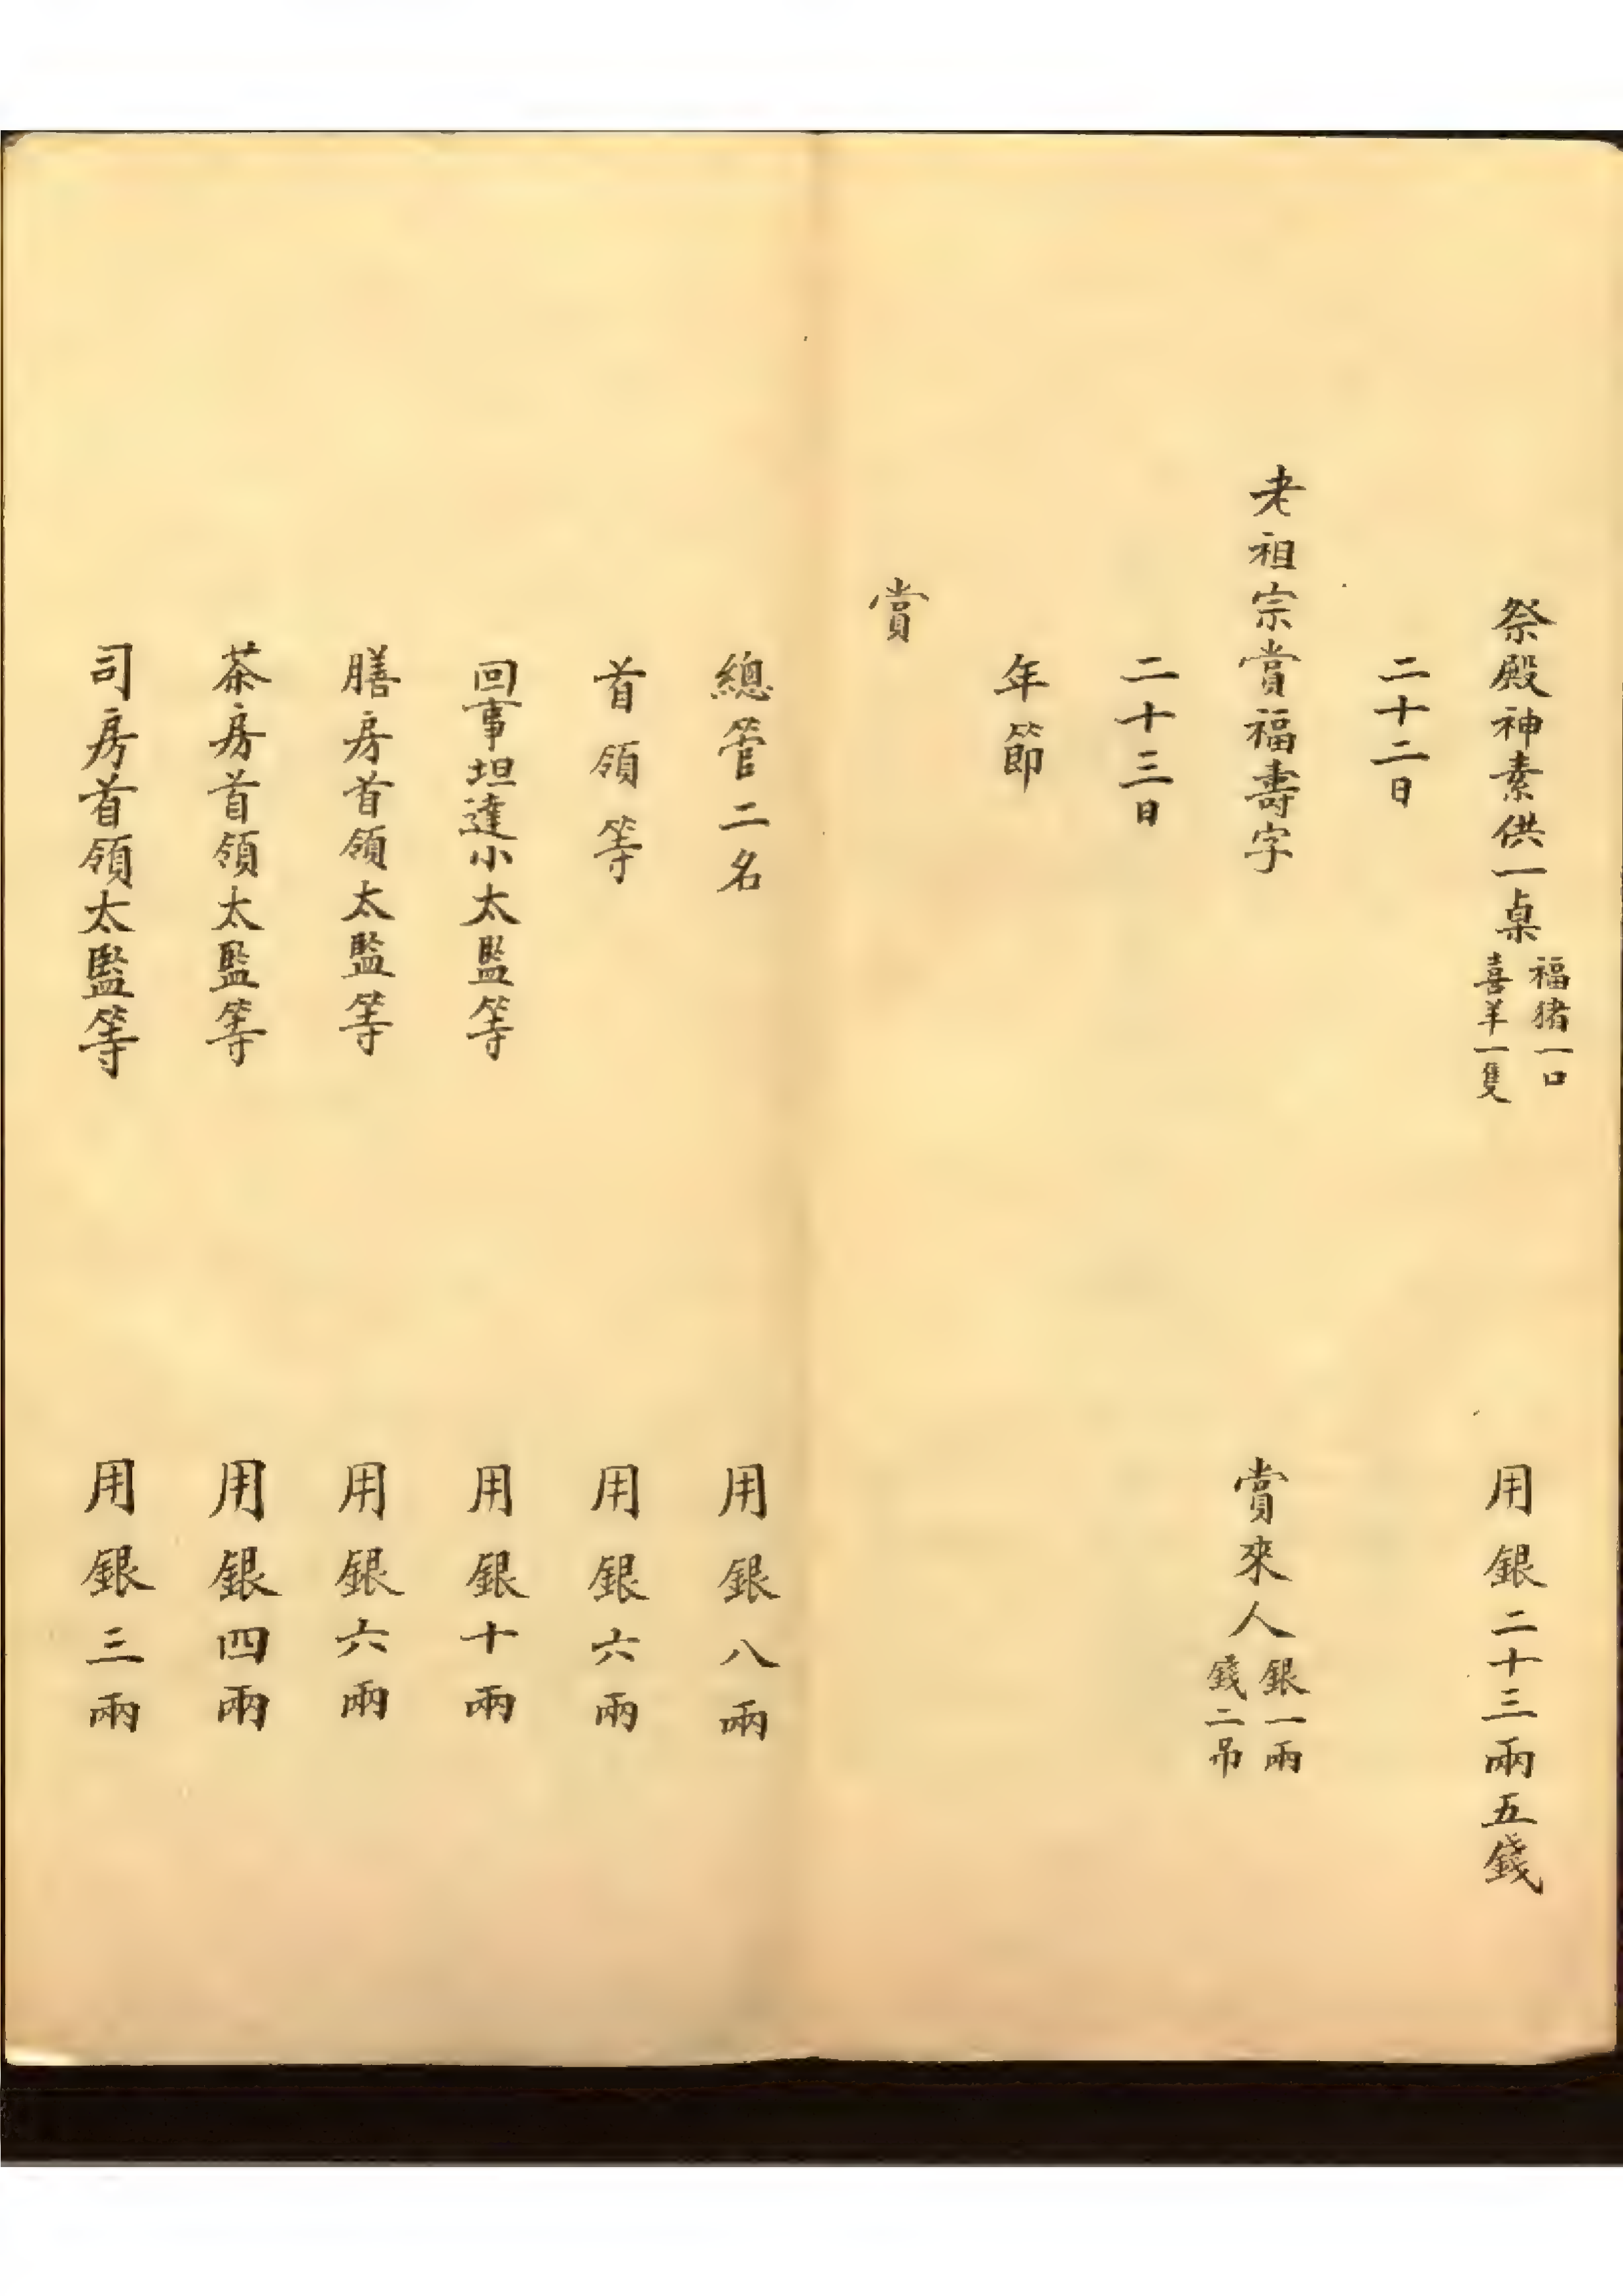 祭殿神素供一桌福猪一口喜羊一隻 用銀二十三兩五錢
二十二日
老祖宗賞福壽字 賞來人銀一兩錢二吊
二十三日
年節
賞
總管二名 用銀八兩
首領等 用銀六兩
回事坦達小太監等 用銀十兩
膳房首領太監等 用銀六兩
茶房首領太監等 用銀四兩
司房首領太監等 用銀三兩